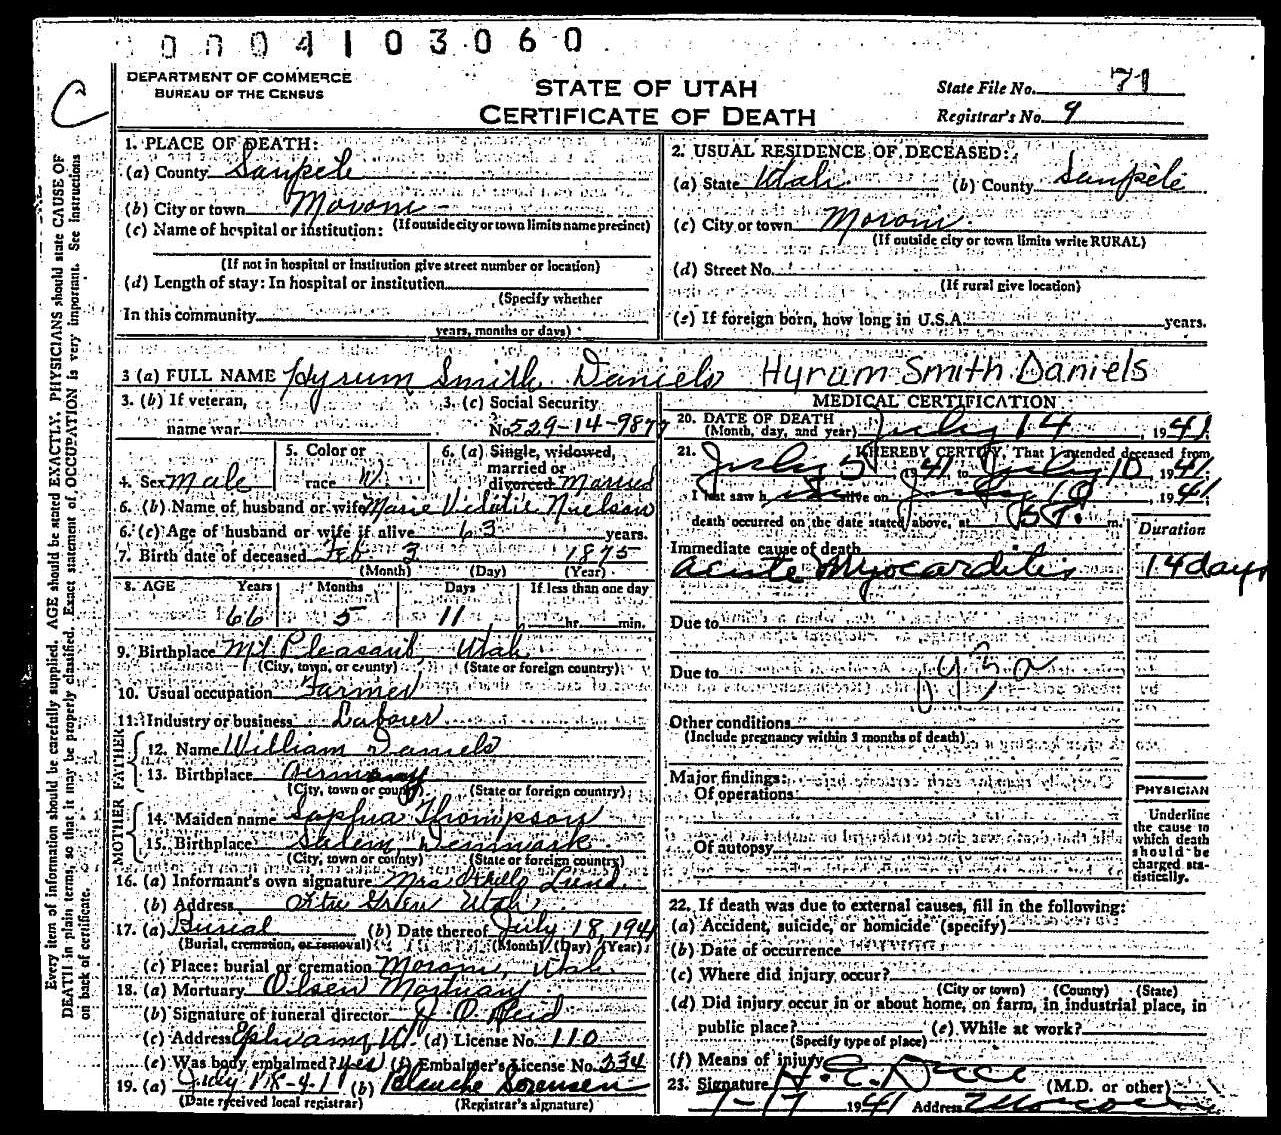 0004103060
C
DEPARTMENT OF COMMERCE
BUREAU OF THE CENSUS
STATE OF UTAH
CERTIFICATE OF DEATH
State File No. 71
Registrar's No. 9
Every item of information should be carefully supplied. AGE should be stated EXACTLY. PHYSICIANS should state CAUSE OF
DEATH in plain terms, so that it may be properly classified. Exact statement of OCCUPATION is very important. See instructions
on back of certificate.
1. PLACE OF DEATH:
(a) County Sanpete
(b) City or town Moroni
(If outside city or town limits name precinct)
(c) Name of hospital or institution:
(If not in hospital or institution give street number or location)
(d) Length of stay: In hospital or institution
(Specify whether
In this community
years, months or days)
2. USUAL RESIDENCE OF DECEASED:
(a) State Utah (b) County Sanpete
(c) City or town Moroni
(If outside city or town limits write RURAL)
(d) Street No.
(If rural give location)
(e) If foreign born, how long in U.S.A. years.
3 (a) FULL NAME Hyrum Smith Daniels Hyrum Smith Daniels
3. (b) If veteran,
name war
3. (c) Social Security
No. 529-14-9877
4. Sex Male
5. Color or
race W.
6. (a) Single, widowed,
married or
divorced Married
6. (b) Name of husband or wife Marie Nielson
6. (c) Age of husband or wife if alive 63 years.
7. Birth date of deceased Feb 3 1875
(Month) (Day) (Year)
8. AGE Years Months Days If less than one day
66 5 11 hr. min.
9. Birthplace Mt Pleasant Utah
(City, town, or county) (State or foreign country)
10. Usual occupation Farmer
11. Industry or business Labourer
FATHER
12. Name William Daniels
13. Birthplace Germany
(City, town or county) (State or foreign country)
MOTHER
14. Maiden name Thompson
15. Birthplace Denmark
(City, town or county) (State or foreign country)
16. (a) Informant's own signature Mrs Lund
(b) Address Utah
17. (a) Burial (b) Date thereof July 18, 1941
(Burial, cremation, or removal) (Month) (Day) (Year)
(c) Place: burial or cremation Moroni, Utah
18. (a) Mortuary Olsen Mortuary
(b) Signature of funeral director
(c) Address Ephraim Ut. (d) License No. 110
(e) Was body embalmed? Yes (f) Embalmer's License No. 334
19. (a) July 18-41 (b) Blanche Sorensen
(Date received local registrar) (Registrar's signature)
MEDICAL CERTIFICATION
20. DATE OF DEATH
(Month, day, and year) July 14, 1941
21. I HEREBY CERTIFY, That I attended deceased from
July 5 1941 to July 10, 1941
I last saw h alive on July 10, 1941
death occurred on the date stated above, at m.
Duration
Immediate cause of death
Acute Myocarditis 14 days
Due to
Due to
93a
Other conditions
(Include pregnancy within 3 months of death)
Major findings:
Of operations
Of autopsy
PHYSICIAN
Underline
the cause to
which death
should be
charged sta-
tistically.
22. If death was due to external causes, fill in the following:
(a) Accident, suicide, or homicide (specify)
(b) Date of occurrence
(c) Where did injury occur?
(City or town) (County) (State)
(d) Did injury occur in or about home, on farm, in industrial place, in
public place? (e) While at work?
(Specify type of place)
(f) Means of injury
23. Signature (M.D. or other)
7-17 1941 Address